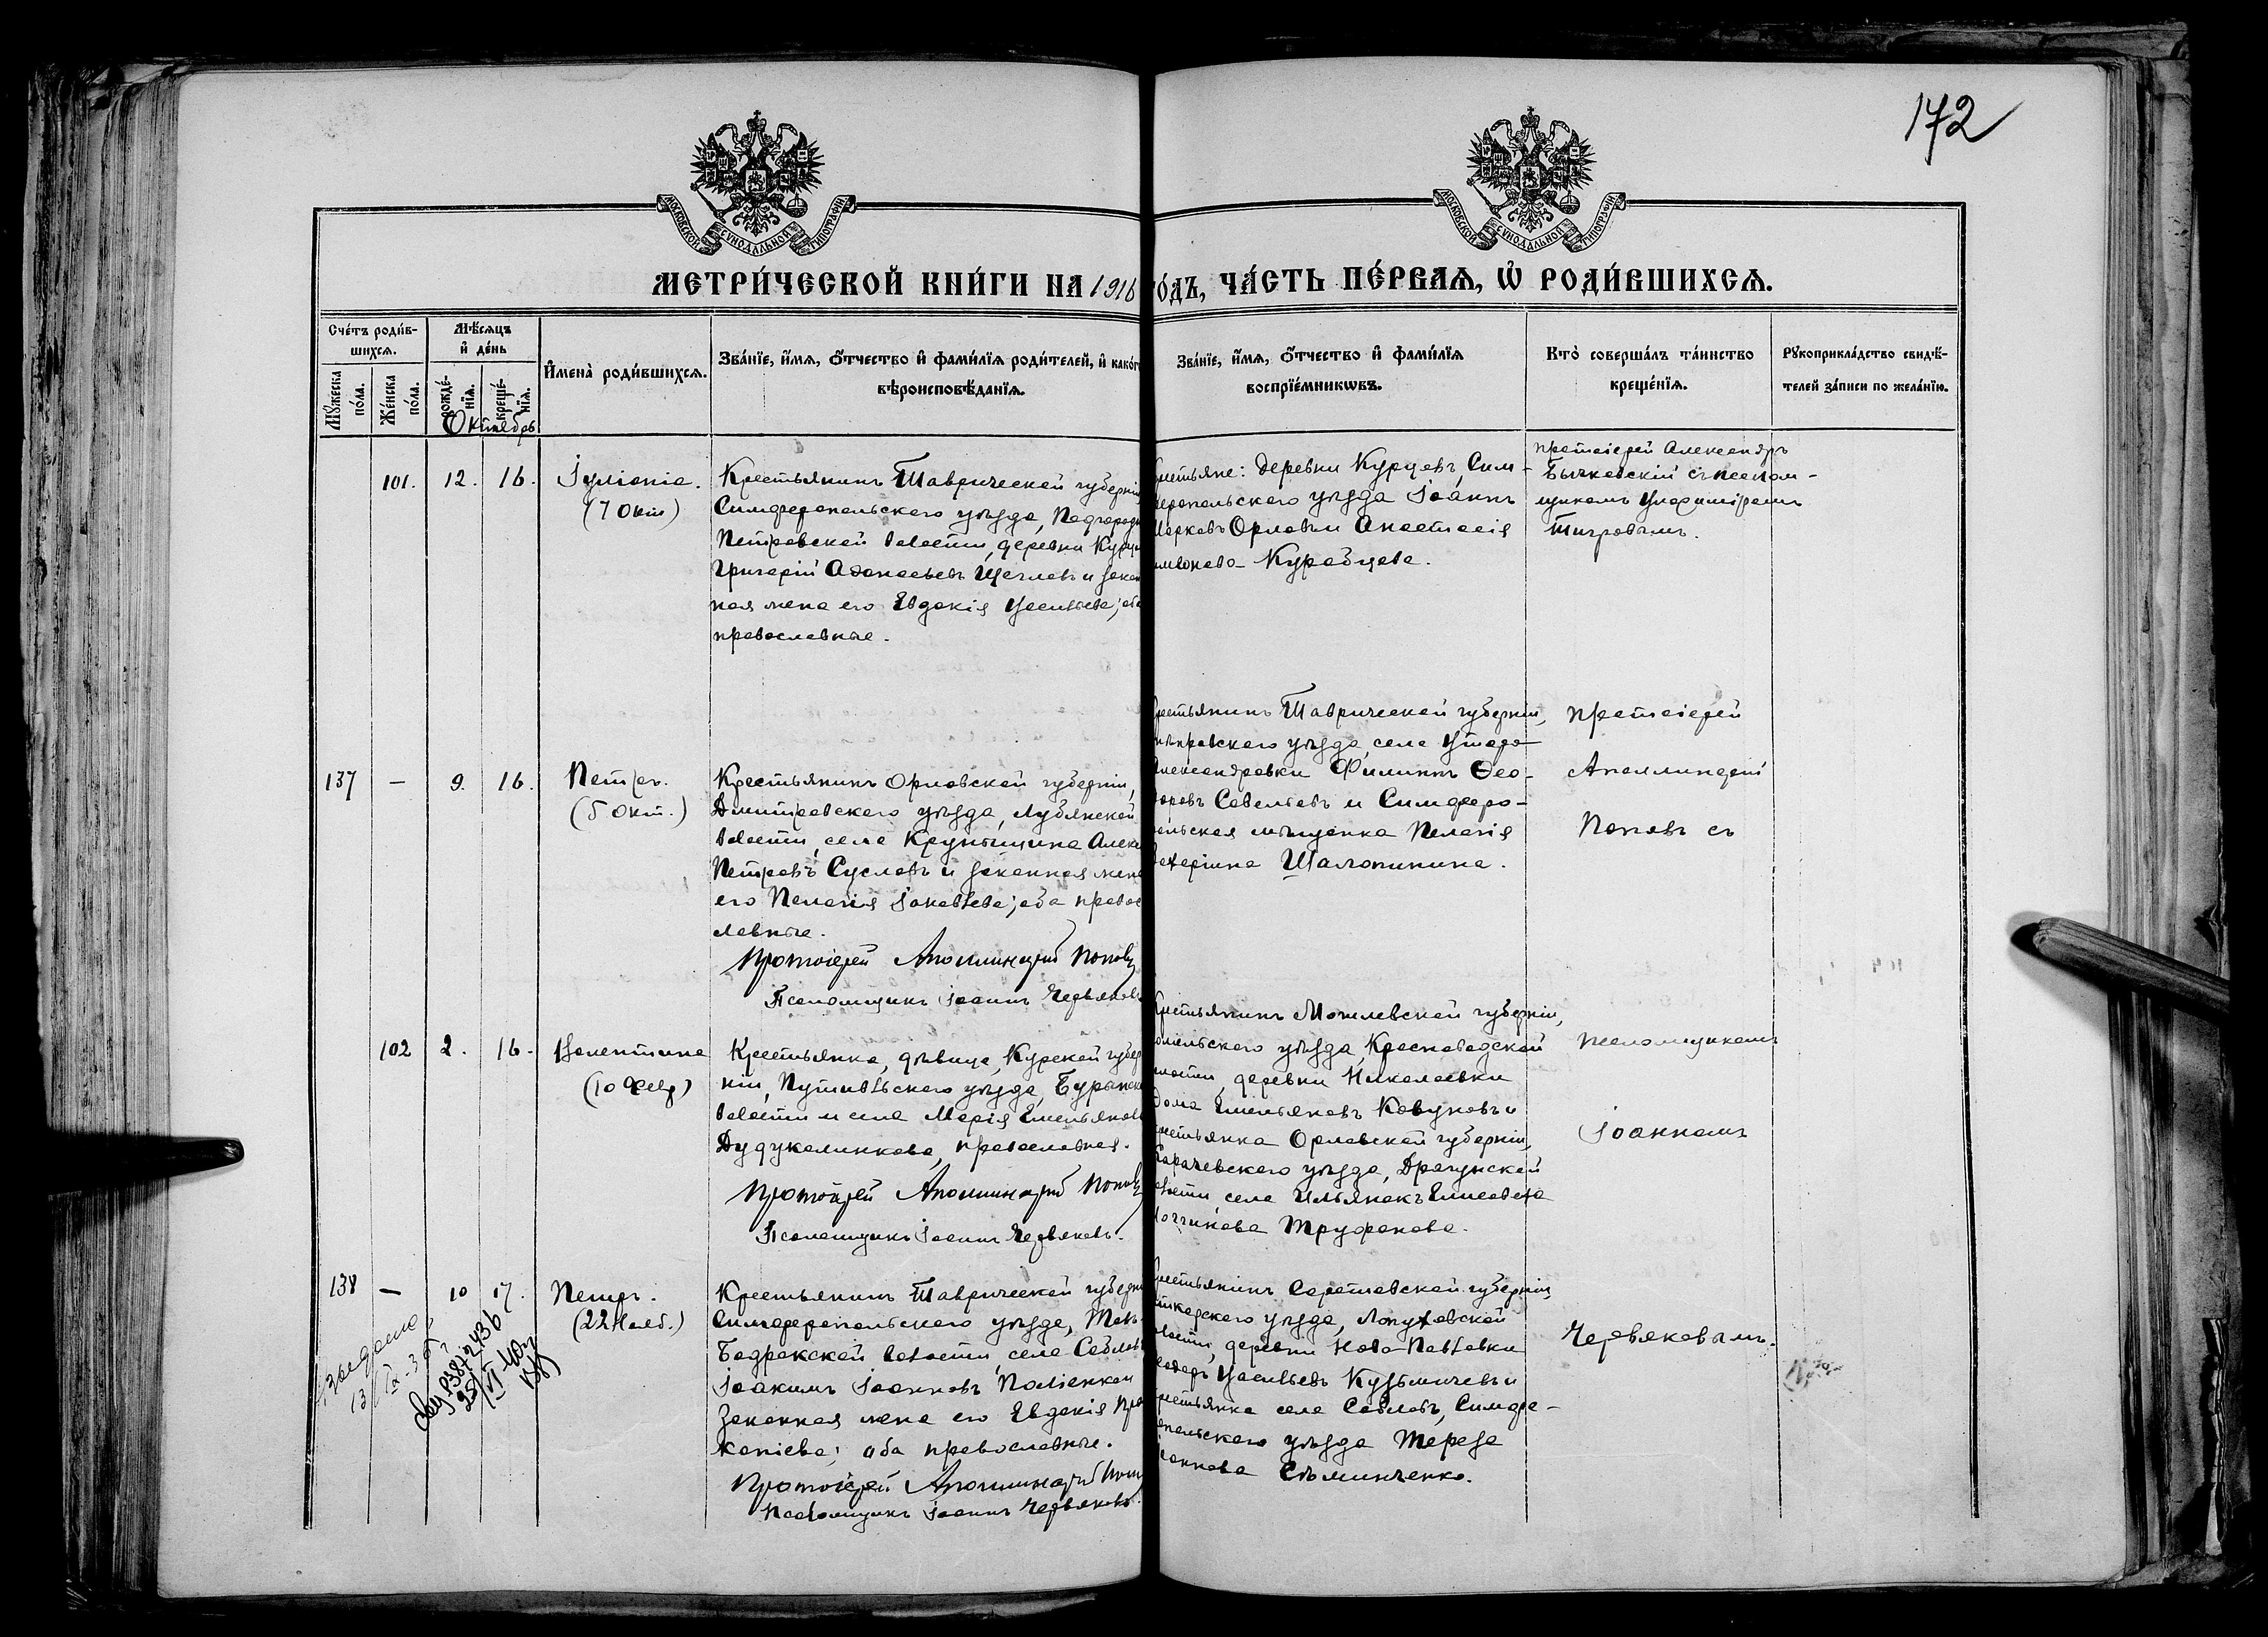 172
МОСКОВСКОЙ СѴНОДАЛЬНОЙ ТИПОГРАФІИ
МОСКОВСКОЙ СѴНОДАЛЬНОЙ ТИПОГРАФІИ
МЕТРИ́ЧЕСКОЙ КНИ́ГИ НА 1916
О́ДЪ, ЧА́СТЬ ПЕ́РВАЯ, Ѿ РОДИ́ВШИХСЯ.
Сче́тъ роди́в-
шихся.
Мꙋ́жеска
по́ла.
Же́нска
по́ла.
Мѣ́сяцъ
и҆ де́нь
рожде́-
нїя.
креще́-
нїя.
Октябрь
И҆мена̀ роди́вшихся.
Зва́нїе, и҆́мя, о҆́тчество и҆ фами́лїя роди́телей, и҆ како́г
вѣроисповѣ́данїя.
Зва́нїе, и҆́мя, о҆́тчество и҆ фами́лїя
воспрїе́мниковъ.
Кто̀ соверша́лъ та́инство
креще́нїя.
Рꙋкоприкла́дство свидѣ́-
телей за́писи по жела́нїю.
101. 12. 16.
Іуліанія.
(7 Окт)
Крестьянинъ Таврической губерніи
Симферопольскаго уѣзда, Подгородн
Петровской волости, деревни Курц
Григорій Аѳанасьевъ Щегловъ и закон
ная жена его Евдокія Васильева; оба
православные.
рестьяне: деревни Курцевъ, Сим-
феропольскаго уѣзда Іоаннъ
Марковъ Орловъ и Анастасія
Курабцева.
Протоіерей Александръ
Бычковскій съ псалом-
щикомъ Владиміромъ
Тигровымъ.
137 — 9. 16.
Петръ.
(5 Окт.)
Крестьянинъ Орловской губерніи,
Дмитровскаго уѣзда, Лубянской
волости, села Крупышина Алекс
Петровъ Сусловъ и законная жена
его Пелагія Іаковлева; оба правос
лавные.
Протоіерей Аполлинарій Поповъ
Псаломщикъ Іоаннъ Червяковъ
рестьянинъ Таврической губерніи,
нѣпровскаго уѣзда, села
Александровки Филиппъ Ѳео-
доровъ Савельевъ и Симферо-
ольская мѣщанка Пелагія
Шаlопинина.
Протоіерей
Аполлинарій
Поповъ съ
102 2. 16.
Валентина
(10 Февр)
Крестьянка, дѣвица, Курской губер
ніи, Путивльскаго уѣзда, Бурынск
волости и села Марія Емельянова
Дудукалинкова, православная.
Протоіерей Аполлинарій Поповъ
Псаломщикъ Іоаннъ Червяковъ.
рестьянинъ Могилевской губерніи,
омельскаго уѣзда, Краснобудской
волости, деревни Николаевки
Емельяновъ Ковуновъ и
рестьянка Орловской губерніи,
Карачевскаго уѣзда, Драгунской
волости, села Ильинокъ Елисавета
Труфанова.
псаломщикомъ
Іоанномъ
138 — 10 17.
Петръ.
(22 Нояб.)
Крестьянинъ Таврической губерн
Симферопольскаго уѣзда, Тав-
Бадракской волости, села Саблов
Іоакимъ Іоанновъ Поліенко и
законная жена его Евдокія Про
копіева; оба православные.
Протоіерей Аполлинарій Поп
Псаломщикъ Іоаннъ Червяковъ.
рестьянинъ Саратовской губерніи,
Аткарскаго уѣзда, Лопуховской
волости, деревни Ново-Павловки
Васильевъ Кузьмичевъ и
рестьянка села Сабловъ, Симфе-
ропольскаго уѣзда Тереза
Іоаннова Съминченко.
Червяковымъ.